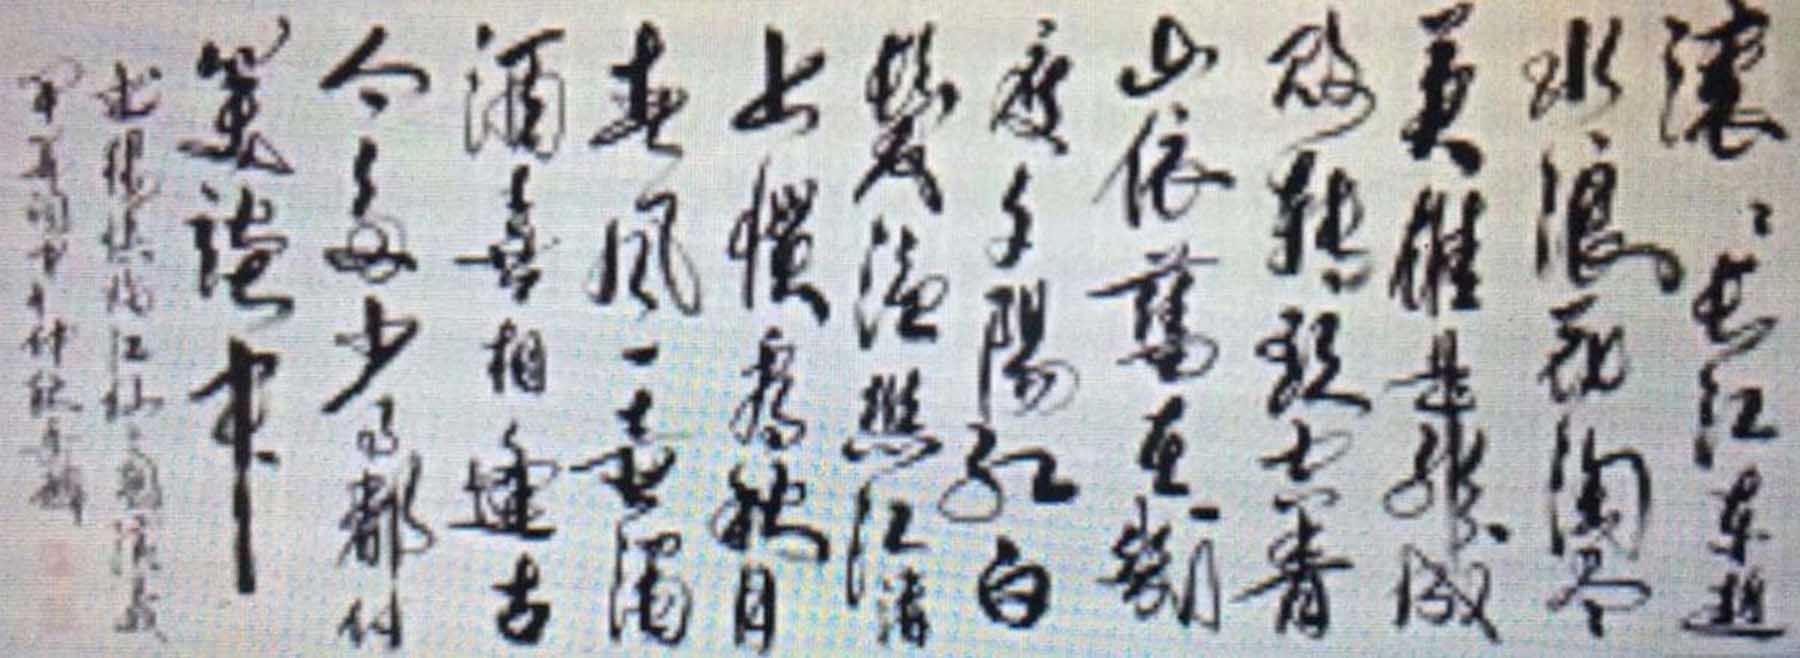 滚〻长江东逝
水浪花淘尽
英雄是非成
败转头空青
山依舊在幾
度夕陽红白
髮渔樵江渚
上惯看秋月
春風一壶濁
酒喜相逢古
今多少事都付
笑谈中
杨慎临江仙